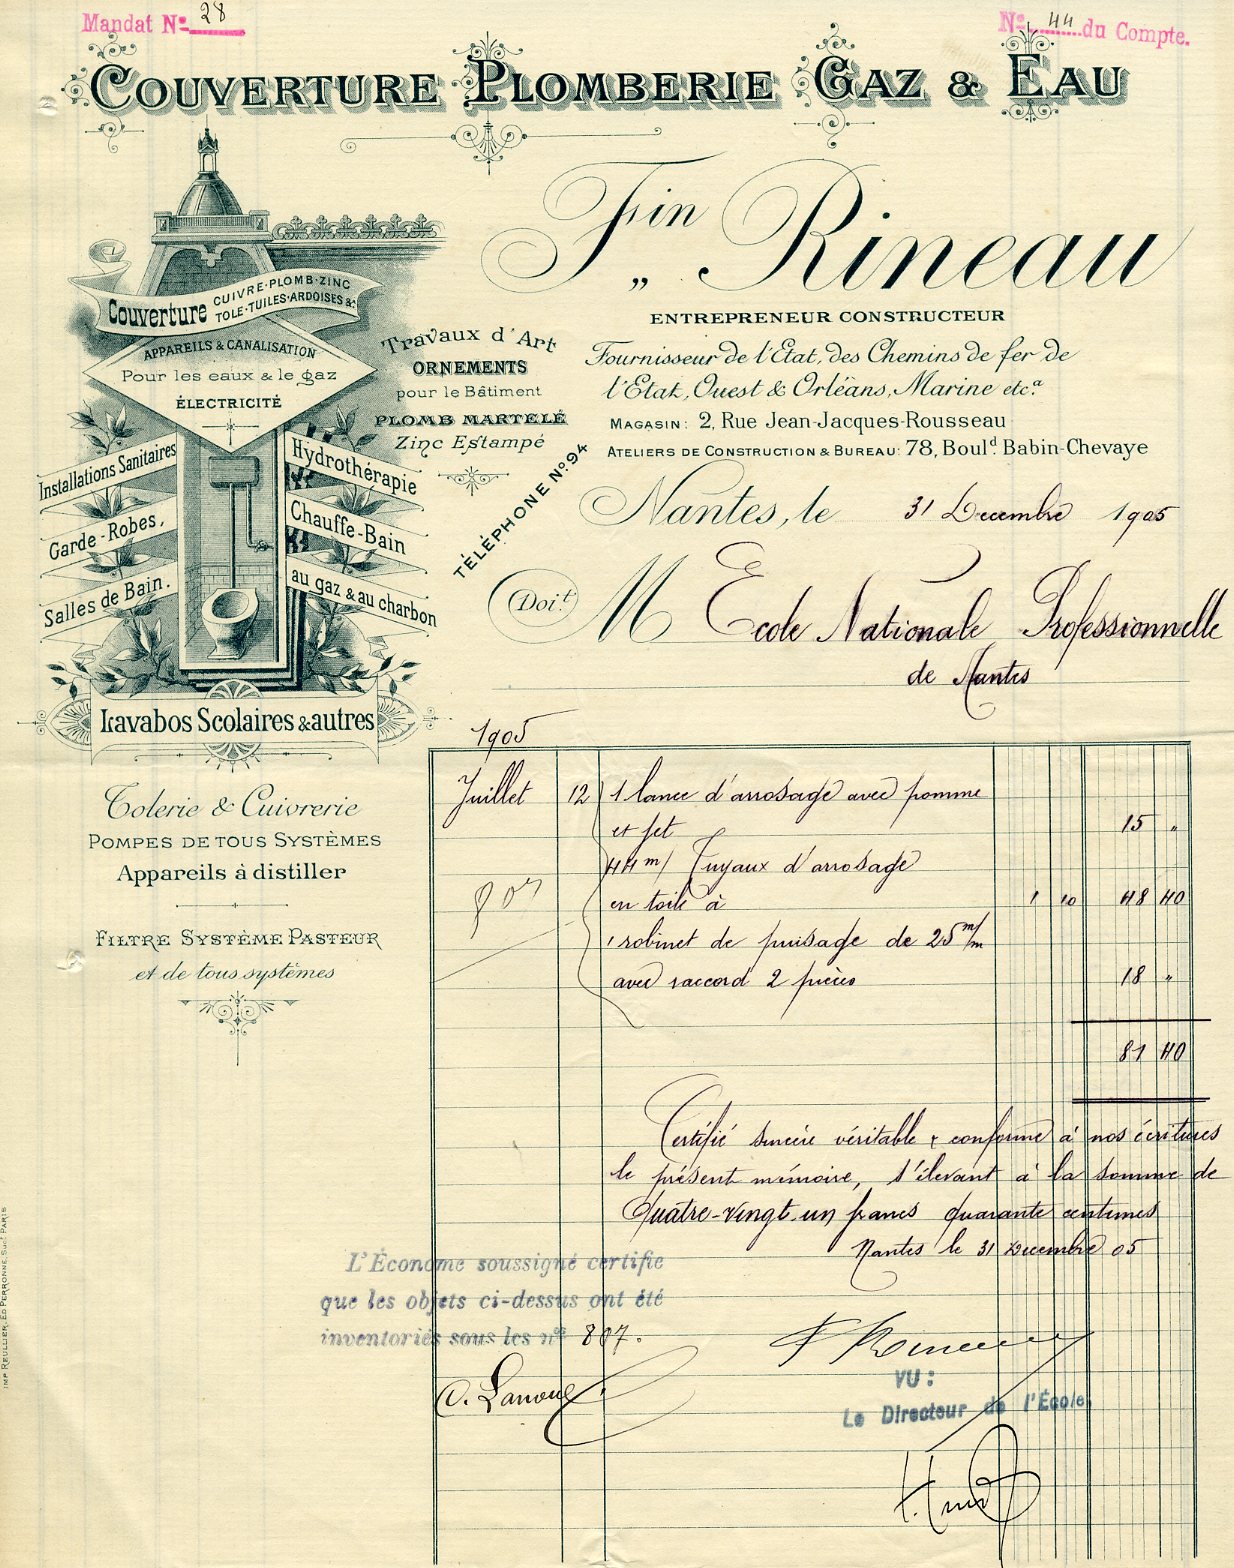 Mandat Nº 28
Nº 44 du Compte.
COUVERTURE PLOMBERIE GAZ & EAU
Fin Rineau
ENTREPRENEUR CONSTRUCTEUR
Fournisseur de l'Etat, des Chemins de fer de
l'Etat, Ouest & Orléans, Marine etc.a
MAGASIN: 2, Rue Jean-Jacques-Rousseau
ATELIERS DE CONSTRUCTION & BUREAU: 78, Boul.d Babin-Chevaye
TÉLÉPHONE Nº 94
Couverture CUIVRE·PLOMB·ZINC
TOLE·TUILES·ARDOISES &.
APPAREILS & CANALISATION
Pour les eaux & le gaz
ÉLECTRICITÉ
Travaux d'Art
ORNEMENTS
pour le Bâtiment
PLOMB MARTELÉ
Zinc Estampé
Installations Sanitaires
Garde-Robes,
Salles de Bain.
Hydrothérapie
Chauffe-Bain
au gaz & au charbon
Lavabos Scolaires & autres
Tolerie & Cuivrerie
POMPES DE TOUS SYSTÈMES
Appareils à distiller
FILTRE SYSTÈME PASTEUR
et de tous systèmes
Nantes, le 31 Decembre 1905
Doit M Ecole Nationale Professionnelle
de Nantes
1905
Juillet 12 1 lance d'arrosage avec pomme
et jet 15 "
44 m/ Tuyaux d'arrosage
807
en toile à 1 10 48 40
1 robinet de puisage de 25 m/m
avec raccord 2 pièces 18 "
81 40
Certifié sincère véritable & conforme à nos écritures
le présent mémoire, s'élevant à la somme de
Quatre-vingt-un francs quarante centimes
Nantes le 31 Décembre 05
L'Économe soussigné certifie
que les objets ci-dessus ont été
inventoriés sous les nos 807.
F Rineau
VU:
Le Directeur de l'École,
IMP. REULLIER, ED PERRONNE, SUCr PARIS